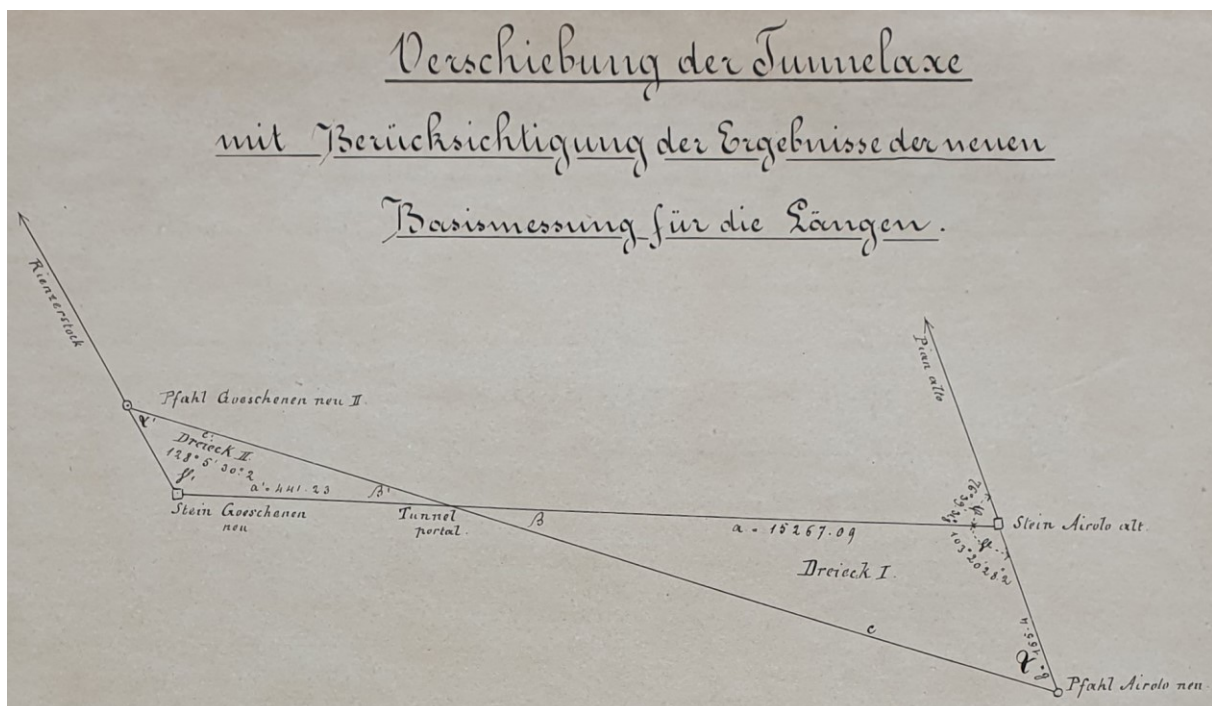 Verschiebung der Tunnelaxe
mit Berücksichtigung der Ergebnisse der neuen
Basismessung für die Längen.
Rienzerstock
Pian alto
Pfahl Goeschenen neu II.
α'
c'
Dreieck II.
128° 5' 30".2
γ'
a' = 441.23
β'
Stein Goeschenen
neu
Tunnel
portal.
β
a = 15267.09
Stein Airolo alt.
γ
103° 20' 28".2
Dreieck I.
c
b = 155.4
α
Pfahl Airolo neu.